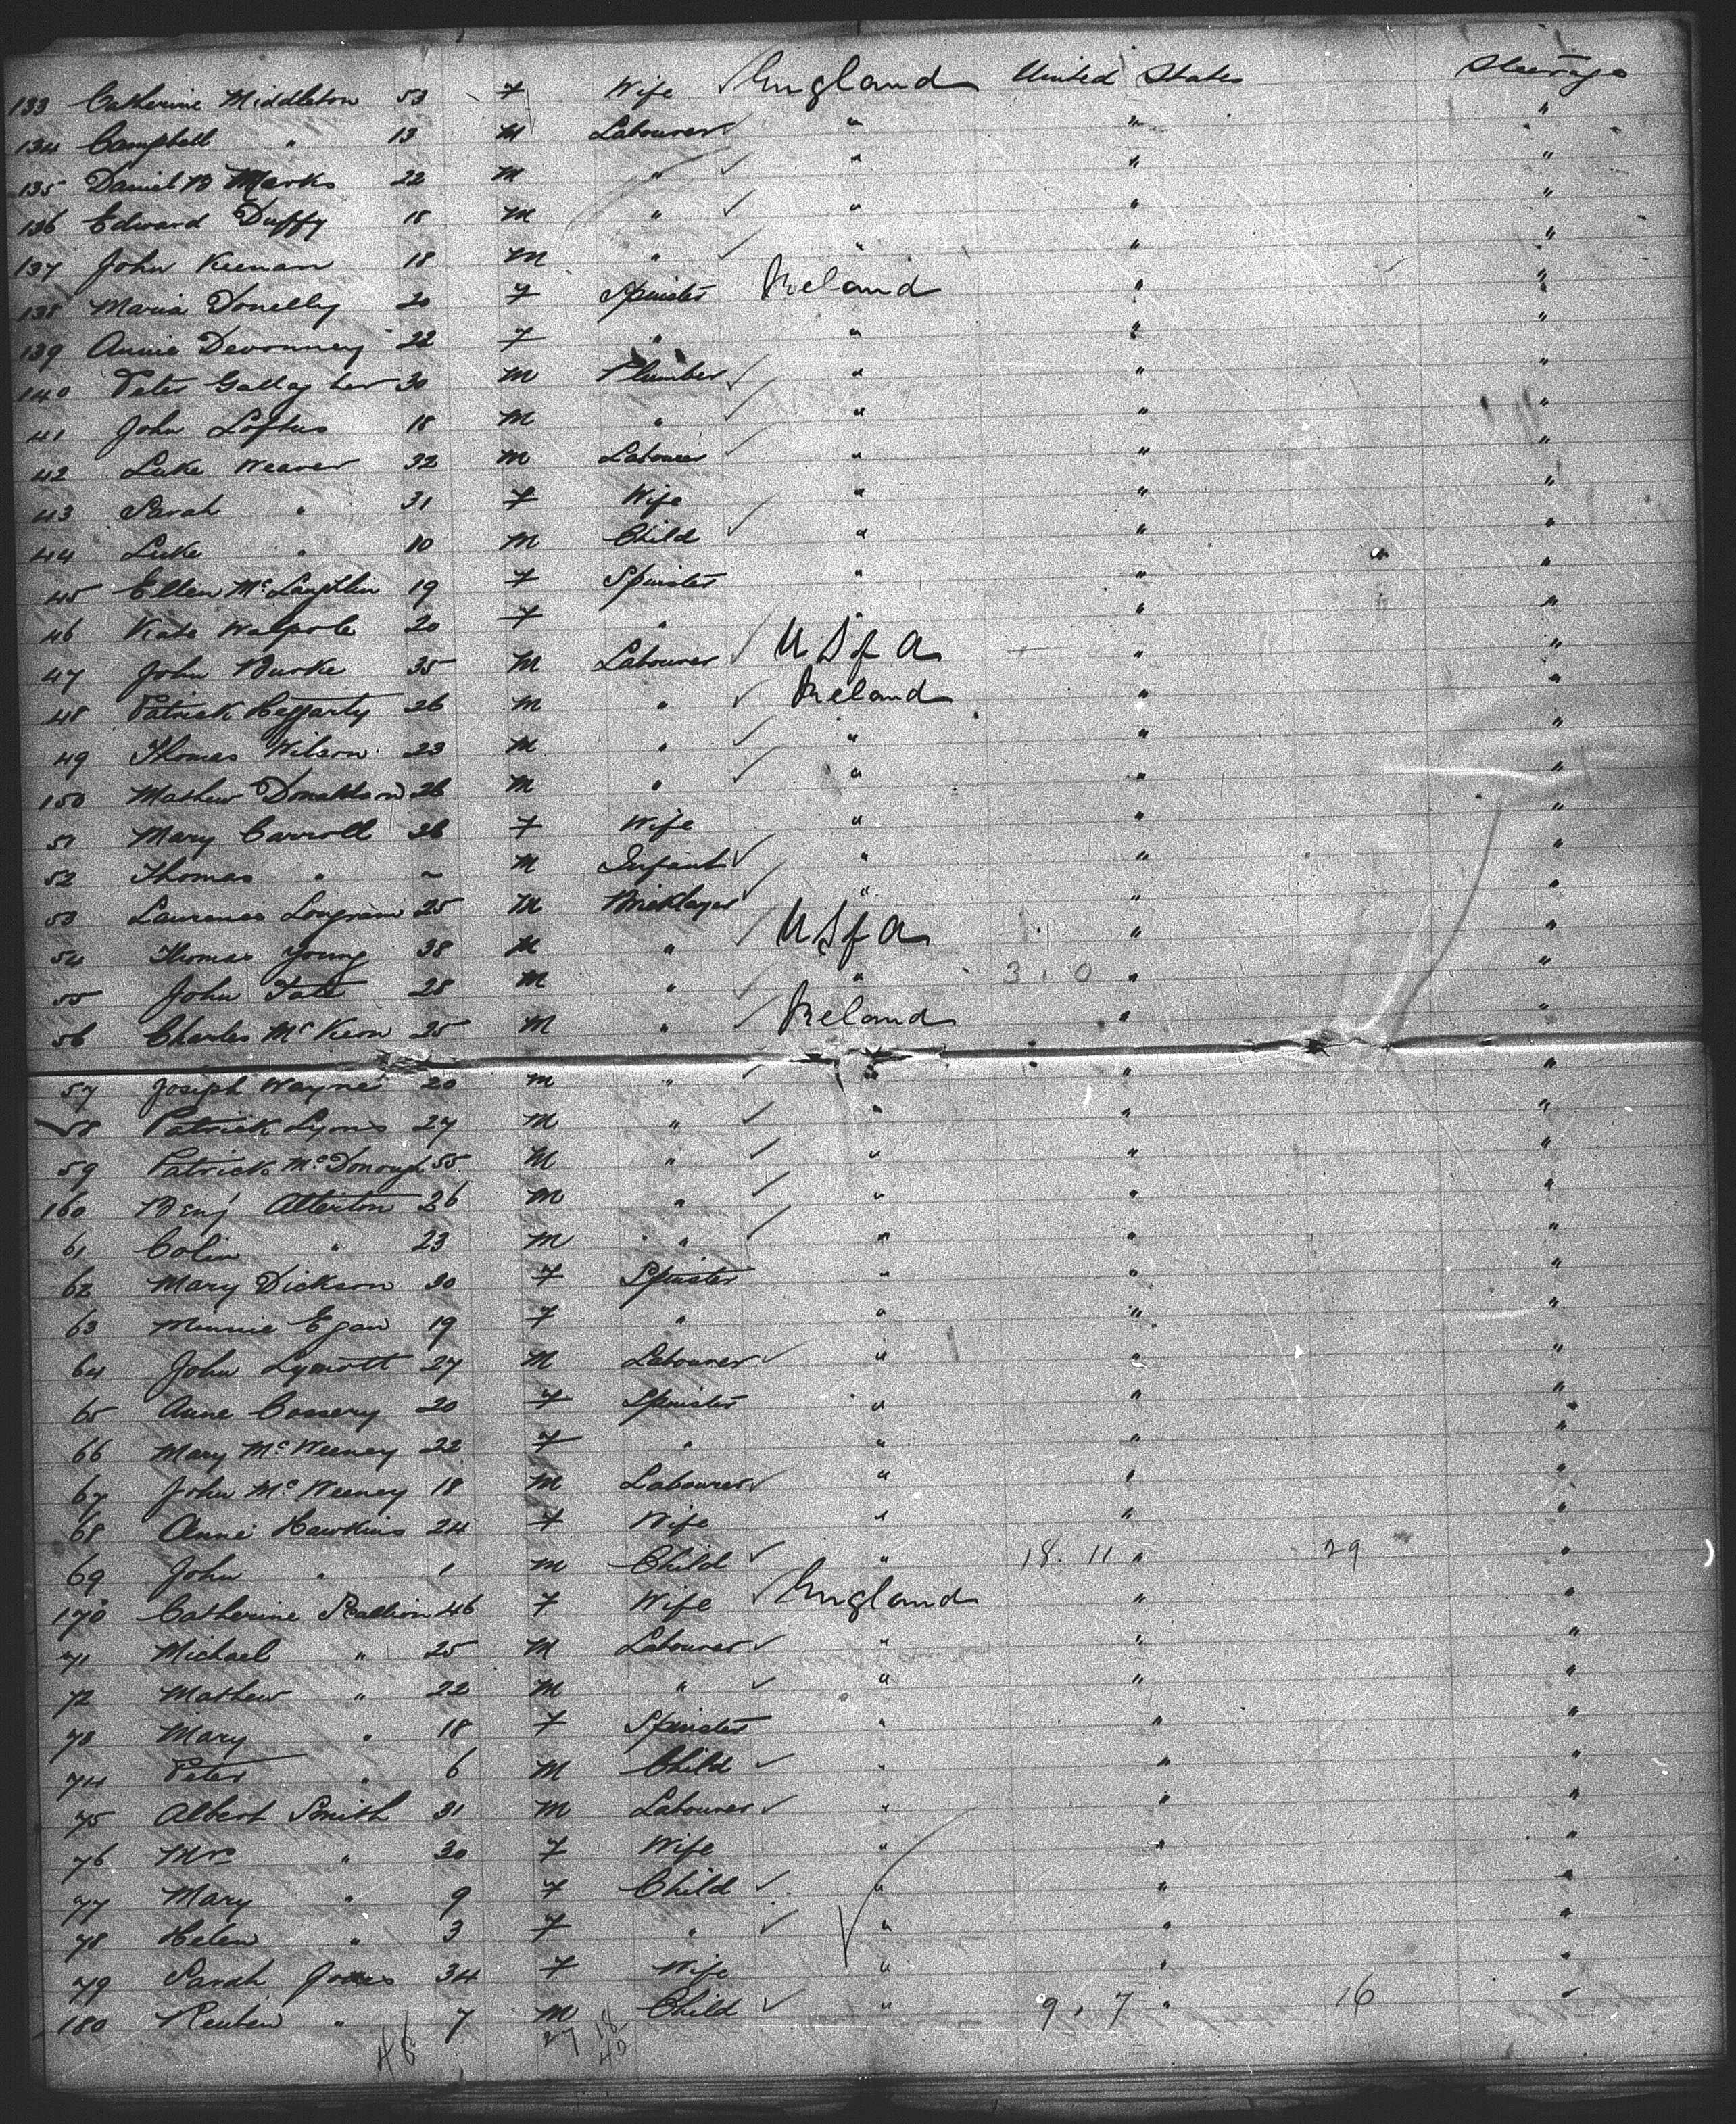 133 Catherine Middleton 53 F Wife England United States Steerage
134 Campbell " 13 M Labourer " " "
135 Daniel B Marks 22 M " " " "
136 Edward Duffy 18 M " " " "
137 John Keenan 18 M " " " "
138 Maria Donelly 20 F Spinster Ireland " "
139 Annie Devonney 22 F " " " "
140 Peter Gallagher 30 M Plumber " " "
41 John Loftus 18 M " " " "
42 Luke Weaver 32 M Labourer " " "
43 Sarah " 31 F Wife " " "
44 Luke " 10 M Child " " "
45 Ellen McLaughlin 19 F Spinster " " "
46 Kate Walpole 20 F " " " "
47 John Burke 35 M Labourer U S of A " "
48 Patrick Heggarty 26 M " Ireland " "
49 Thomas Wilson 23 M " " " "
150 Mathew Donaldson 26 M " " " "
51 Mary Carroll 26 F Wife " " "
52 Thomas " ~ M Infant " " "
53 Laurence 25 M Bricklayer " " "
54 Thomas Young 38 M " U S of A " "
55 John Tate 28 M " " 3 . 0 " "
56 Charles McKeon 25 M " Ireland " "
57 Joseph Wayne 20 M " " " "
58 Patrick Lyons 27 M " " " "
59 Patrick McDonough 55 M " " " "
160 Benj Atterton 26 M " " " "
61 Colin " 23 M " " " "
62 Mary Dickson 30 F Spinster " " "
63 Minnie Egan 19 F " " " "
64 John 27 M Labourer " " "
65 Anne Cossery 20 F Spinster " " "
66 Mary McWeeney 22 F " " " "
67 John McWeeney 18 M Labourer " " "
68 Anne Hawkins 24 F Wife " " "
69 John " 1 M Child " 18 . 11 " 29 "
170 Catherine 46 F Wife England " "
71 Michael " 25 M Labourer " " "
72 Mathew " 22 M " " " "
73 Mary " 18 F Spinster " " "
74 Peter " 6 M Child " " "
75 Albert Smith 31 M Labourer " " "
76 Mrs " 30 F Wife " " "
77 Mary " 9 F Child " " "
78 Helen " 3 F " " " "
79 Sarah Jones 34 F Wife " " "
180 Reuben " 7 M Child " 9 . 7 " 16 "
48 27 18